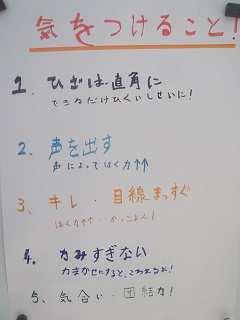 気をつけること!
1. ひざは直角に
できるだけひくいしせいに!
2、声を出す
声によってはく力↑↑
3、キレ・目線まっすぐ
はく力↑↑・かっこよく!
4. 力みすぎない
力まかせにすると、こわれるよ!
5、気合い・団結力!